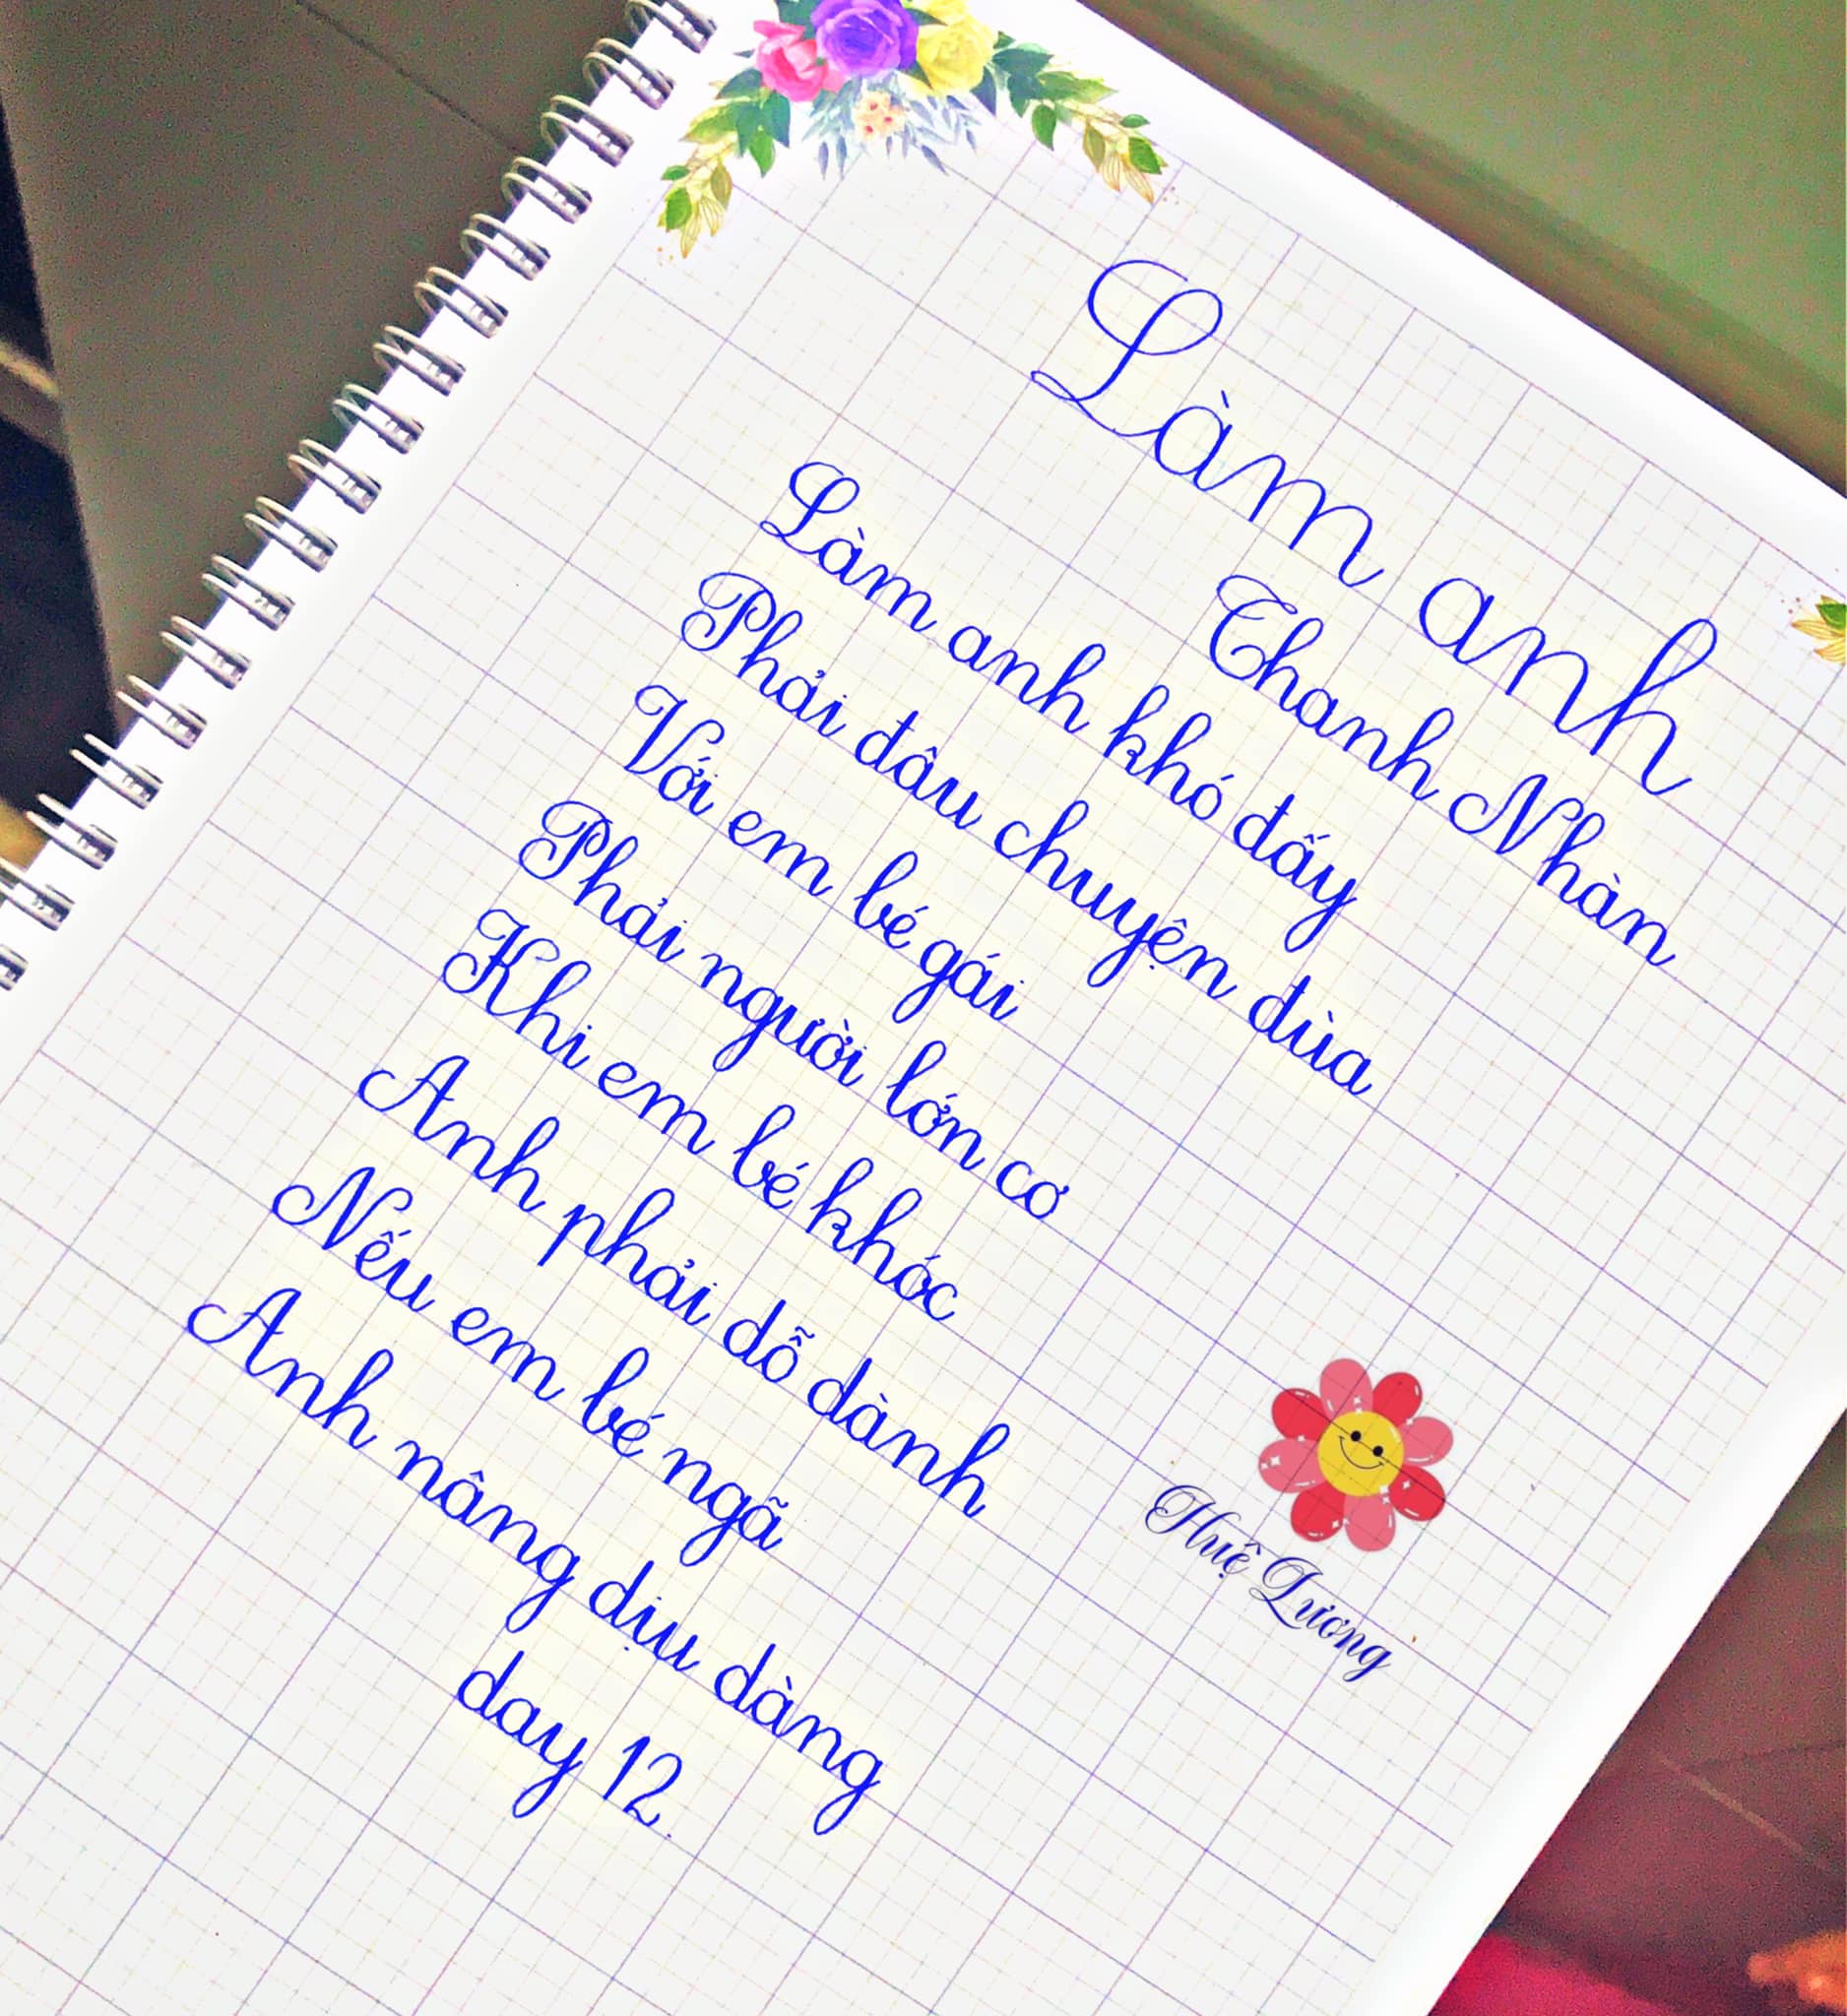 Làm anh
Thanh Nhàn
Làm anh khó đấy
Phải đâu chuyện đùa
Với em bé gái
Phải người lớn cơ
Khi em bé khóc
Anh phải dỗ dành
Nếu em bé ngã
Anh nâng dịu dàng
day 12.
Huệ Lương